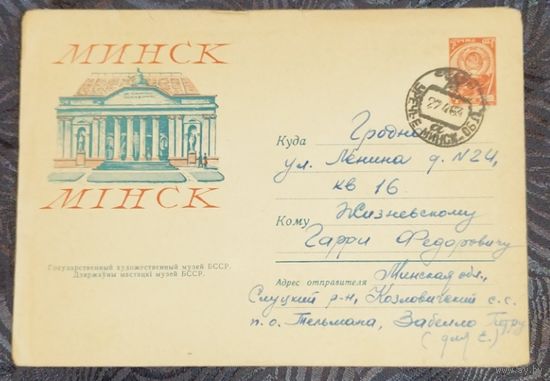 МИНСК
МІНСК
Государственный художественный музей БССР.
Дзяржаўны мастацкі музей БССР.
УРЕЧЬЕ МИНСК. ОБЛ.
27 4 64
Куда Гродно
ул. Ленина д. N 24,
кв 16
Кому Жизневскому
Гарри Федоровичу
Адрес отправителя Минская обл.,
Слуцкий р-н, Козловичский с.с.
п.о. Тельмана, Забелло Петру
(для С.)